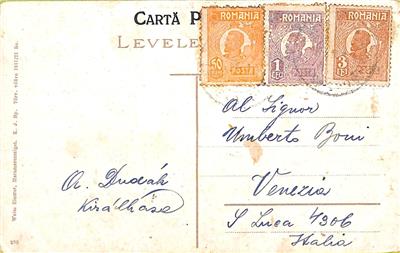 CARTĂ P
LEVELE
ROMANIA
50
BANI
POSTA
ROMANIA
1
LEU
POSTA
ROMANIA
3
LEI
POSTA
Al Signor
Umberto Boni
Venezia
S Luca 4306
Italia
A. Dudák
Királháza